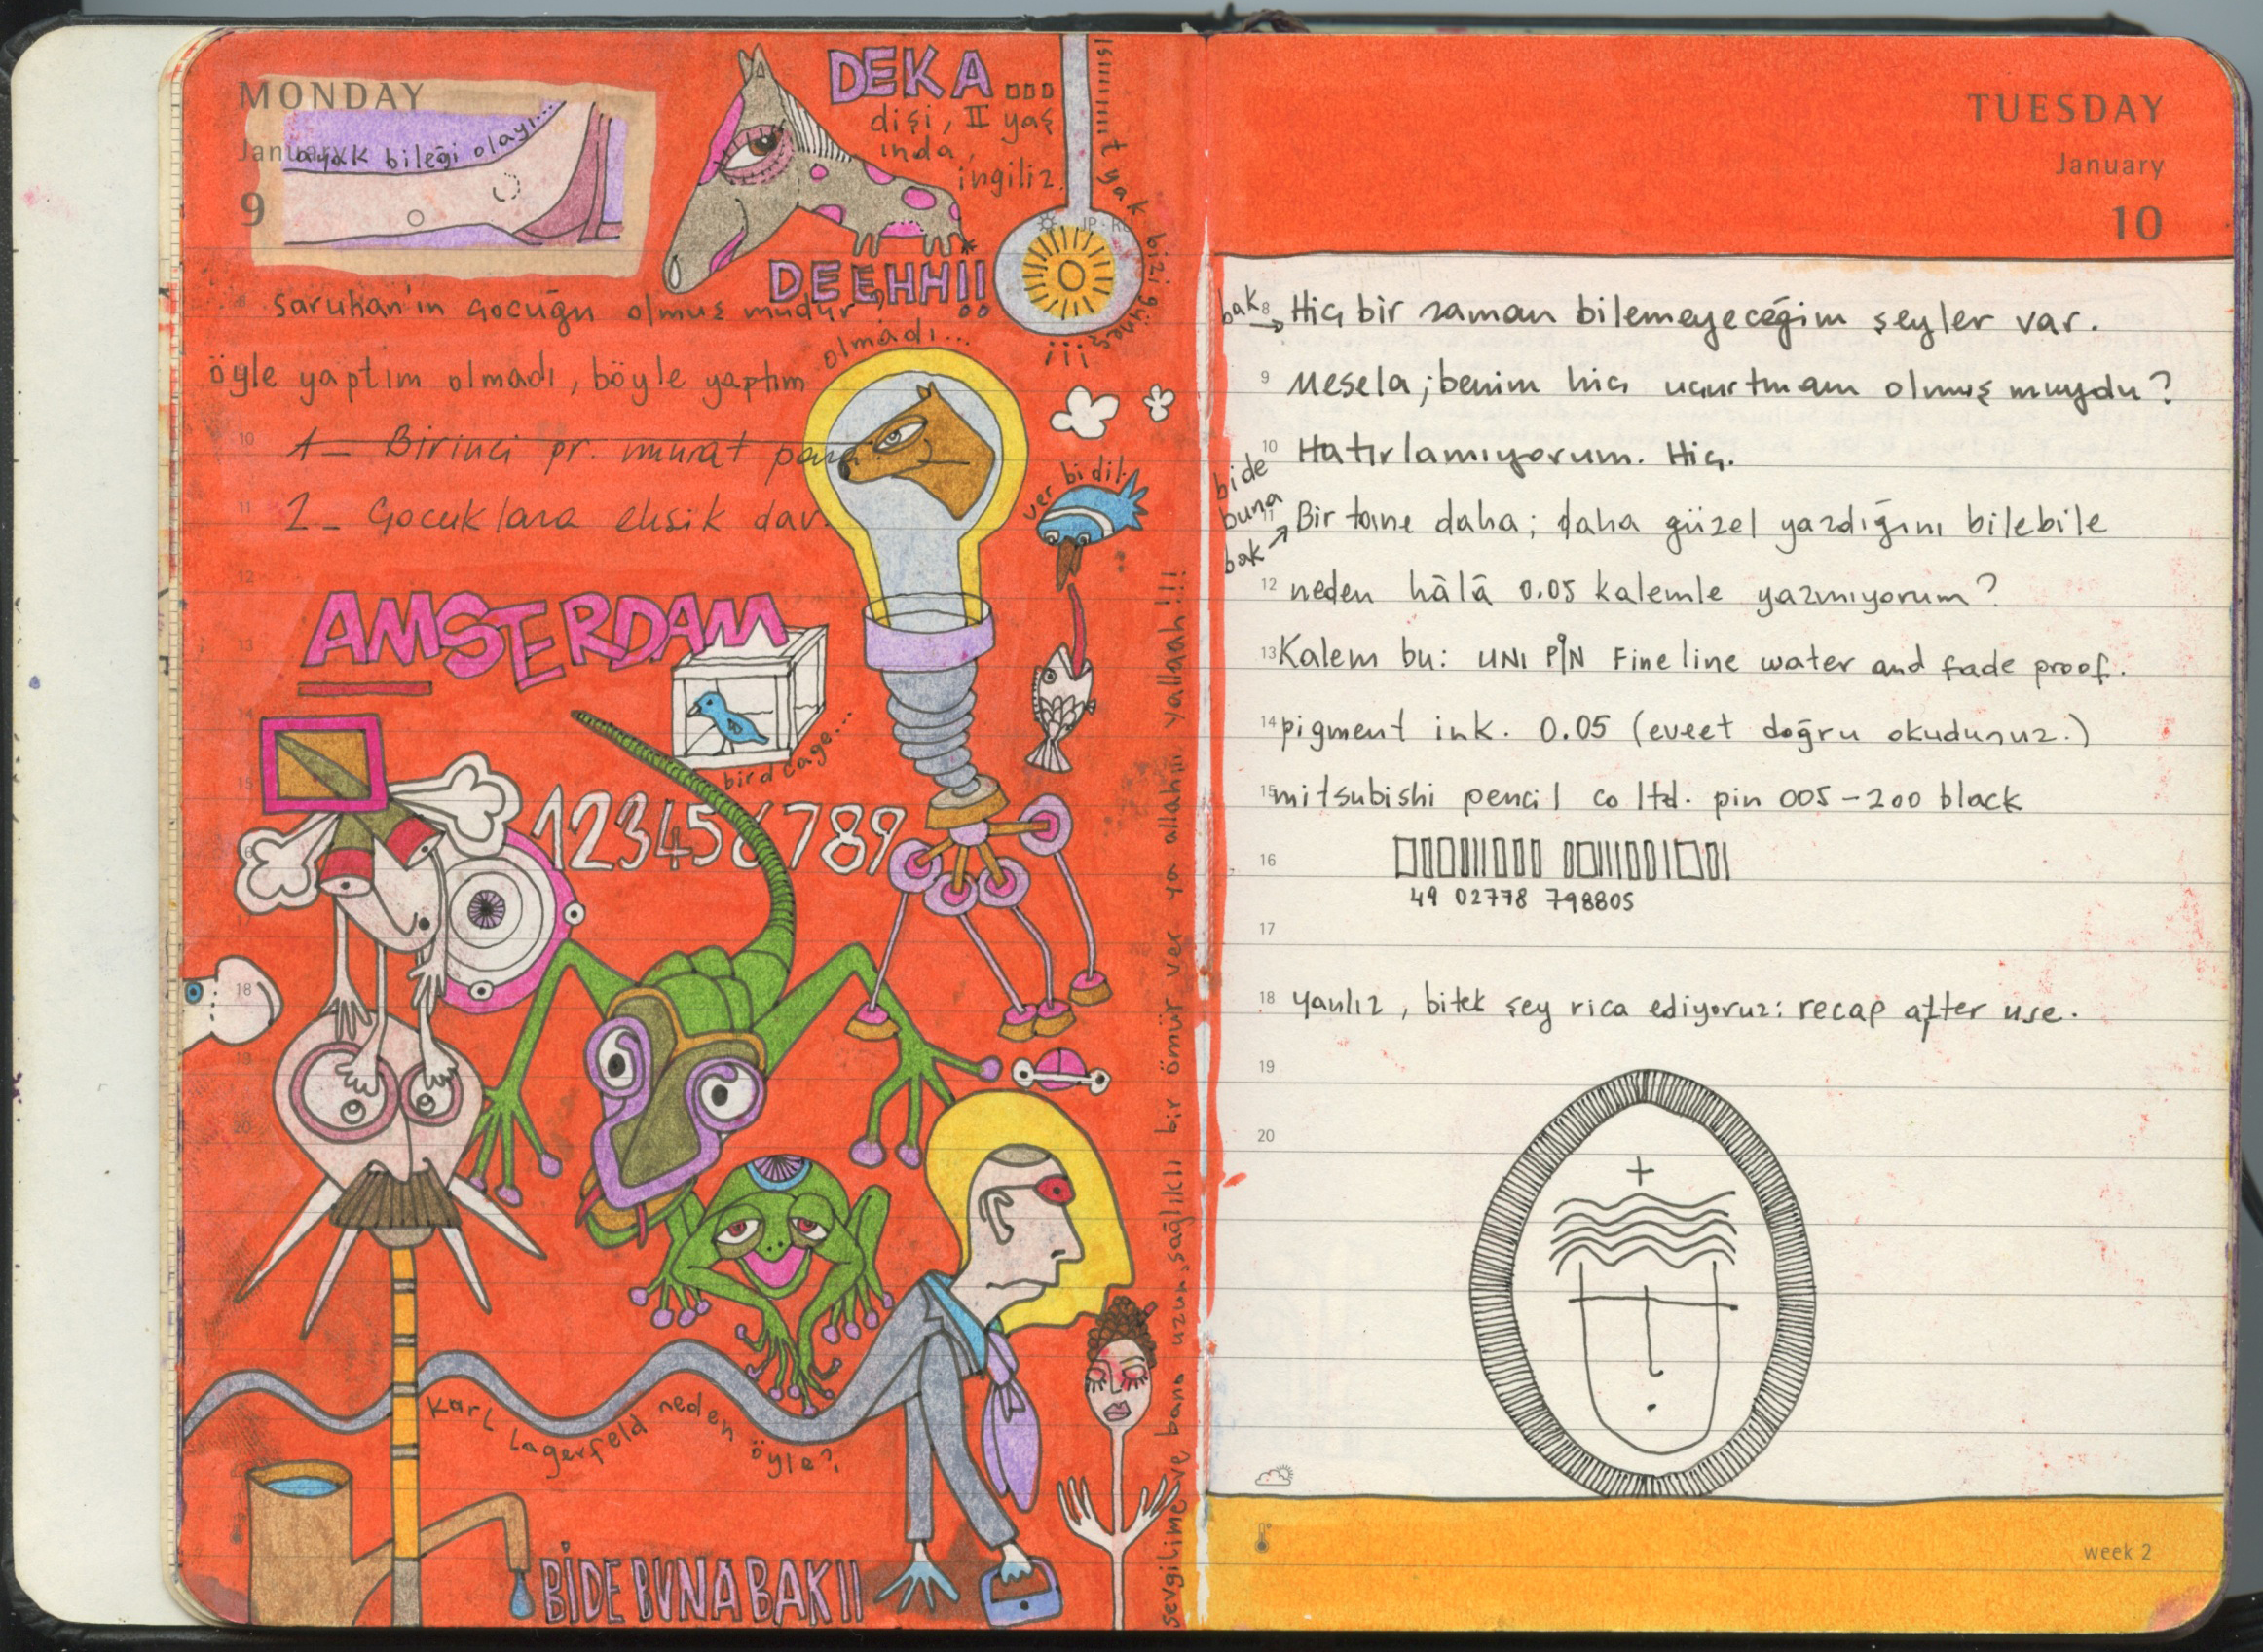 MONDAY
January
9
ayak bileği olayı...
DEKA
dişi, II yaş
ında,
ingiliz.
DEEHHII
ısıııııııt yak bizi güneş
iii
saruhan'ın çocuğu olmuş mudur
öyle yaptım olmadı, böyle yaptım olmadı...
10
1- Birinci pr. murat
11
2- Çocuklara eksik dav.
12
ver bi dil.
AMSTERDAM
13
14
bird cage...
15
123456789
18
20
karl lagerfeld neden öyle?
BİDE BUNA BAK!!
sevgilime ve bana uzun, sağlıklı bir ömür ver ya allahım yallaaah!!!
TUESDAY
January
10
bak
8 Hiç bir zaman bilemeyeceğim şeyler var.
9 Mesela; benim hiç uçurtmam olmuş muydu?
10 Hatırlamıyorum. Hiç.
bide buna bak
11 Bir tane daha; daha güzel yazdığını bilebile
12 neden hâlâ 0.05 kalemle yazmıyorum?
13 Kalem bu: UNI PİN Fine line water and fade proof.
14 pigment ink. 0.05 (eveet doğru okudunuz.)
15 mitsubishi pencil co ltd. pin 005-200 black
16
49 02778 798805
17
18 yanlız, bitek şey rica ediyoruz: recap after use.
19
20
week 2